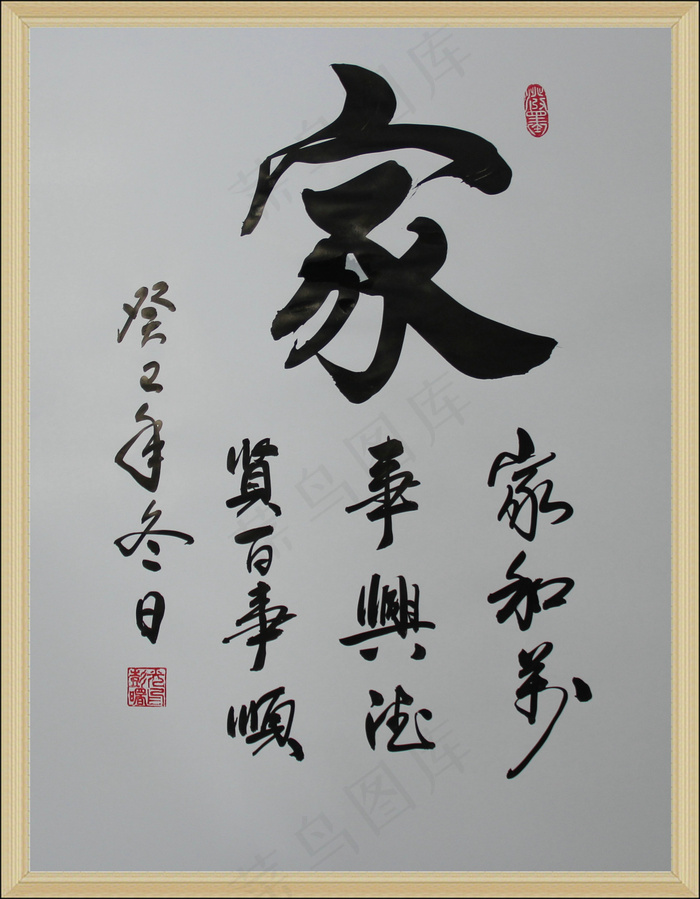 家
家和萬
事興德
賢百事順
癸巳年冬日
菜鸟图库